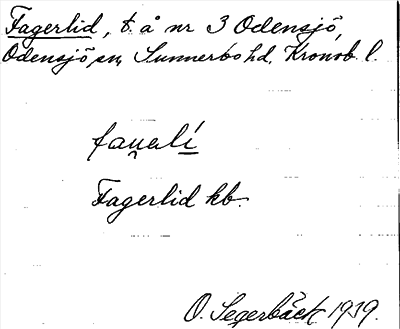 Fagerlid, t. å nr 3 Odensjö,
Odensjö sn, Sunnerbo hd, Kronob. l.
Fagerlid kb.
O. Segerbäck 1939.